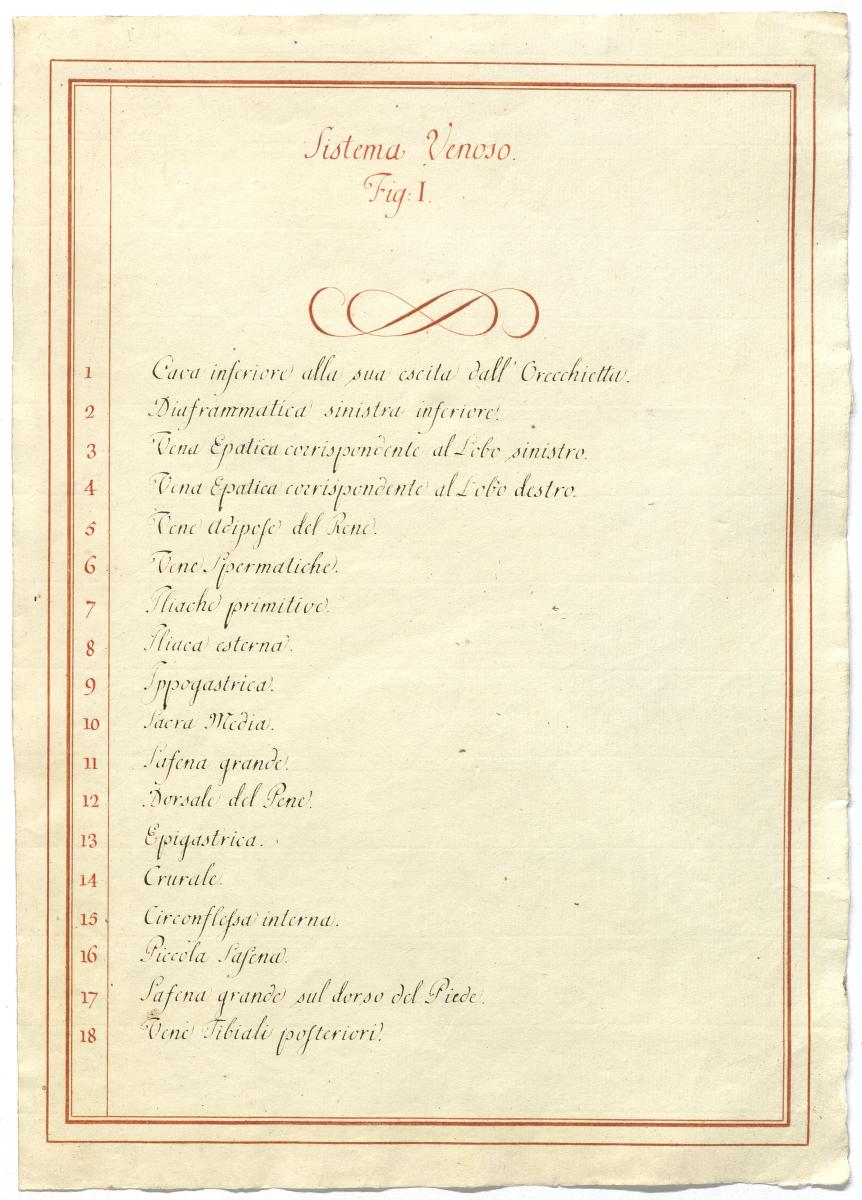 Sistema Venoso.
Fig: I.
1 Cava inferiore alla sua escita dall' Orecchietta.
2 Diaframmatica sinistra inferiore.
3 Vena Epatica corrispondente al Lobo sinistro.
4 Vena Epatica corrispondente al Lobo destro.
5 Vene Adipose del Rene.
6 Vene Spermatiche.
7 Iliache primitive.
8 Iliaca esterna.
9 Ippogastrica.
10 Sacra Media.
11 Safena grande.
12 Dorsale del Pene.
13 Epigastrica.
14 Crurale.
15 Circonflessa interna.
16 Piccola Safena.
17 Safena grande sul dorso del Piede.
18 Vene Tibiali posteriori.